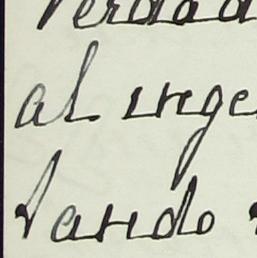 Verdad
al inge
tando